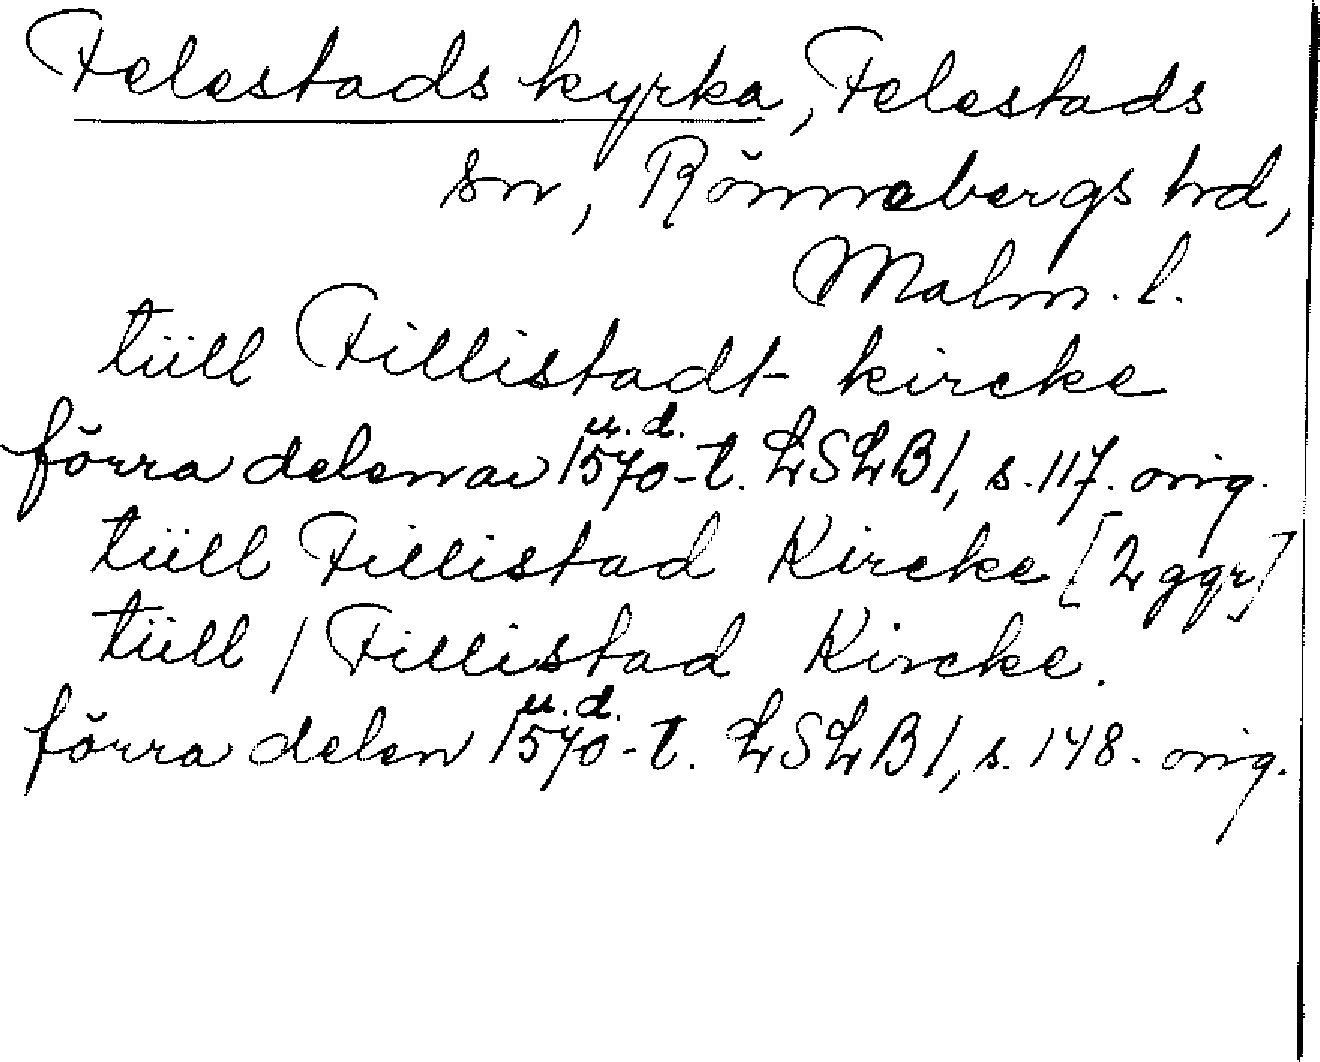 Felestads kyrka, Felestads
sn, Rönnebergs hd,
Malm. l.
tüll Fillistadt kircke
u. d.
förra delen av 1570-t. LSLB1, s. 117. orig.
tüll Fillistad Kircke [2 ggr]
tüll / Fillistad Kircke.
u. d.
förra delen 1570-t. LSLB1, s. 148. orig.